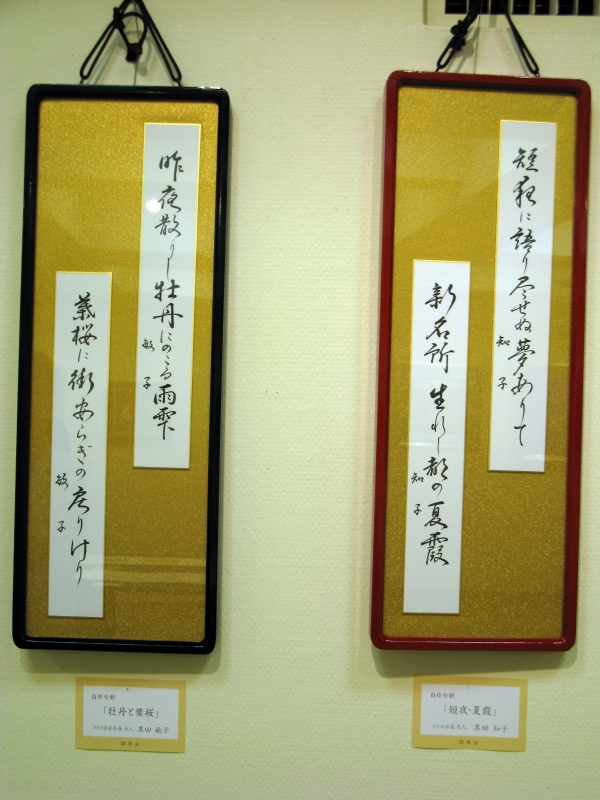 短夜に語り尽せぬ夢ありて
知子
新名所生れし都の夏霞
知子
昨夜散りし牡丹にのこる雨雫
敏子
葉桜に街安らぎの戻りけり
敏子
自作句額
「短夜・夏霞」
黒田 知子
自作句額
「牡丹と葉桜」
黒田 敏子